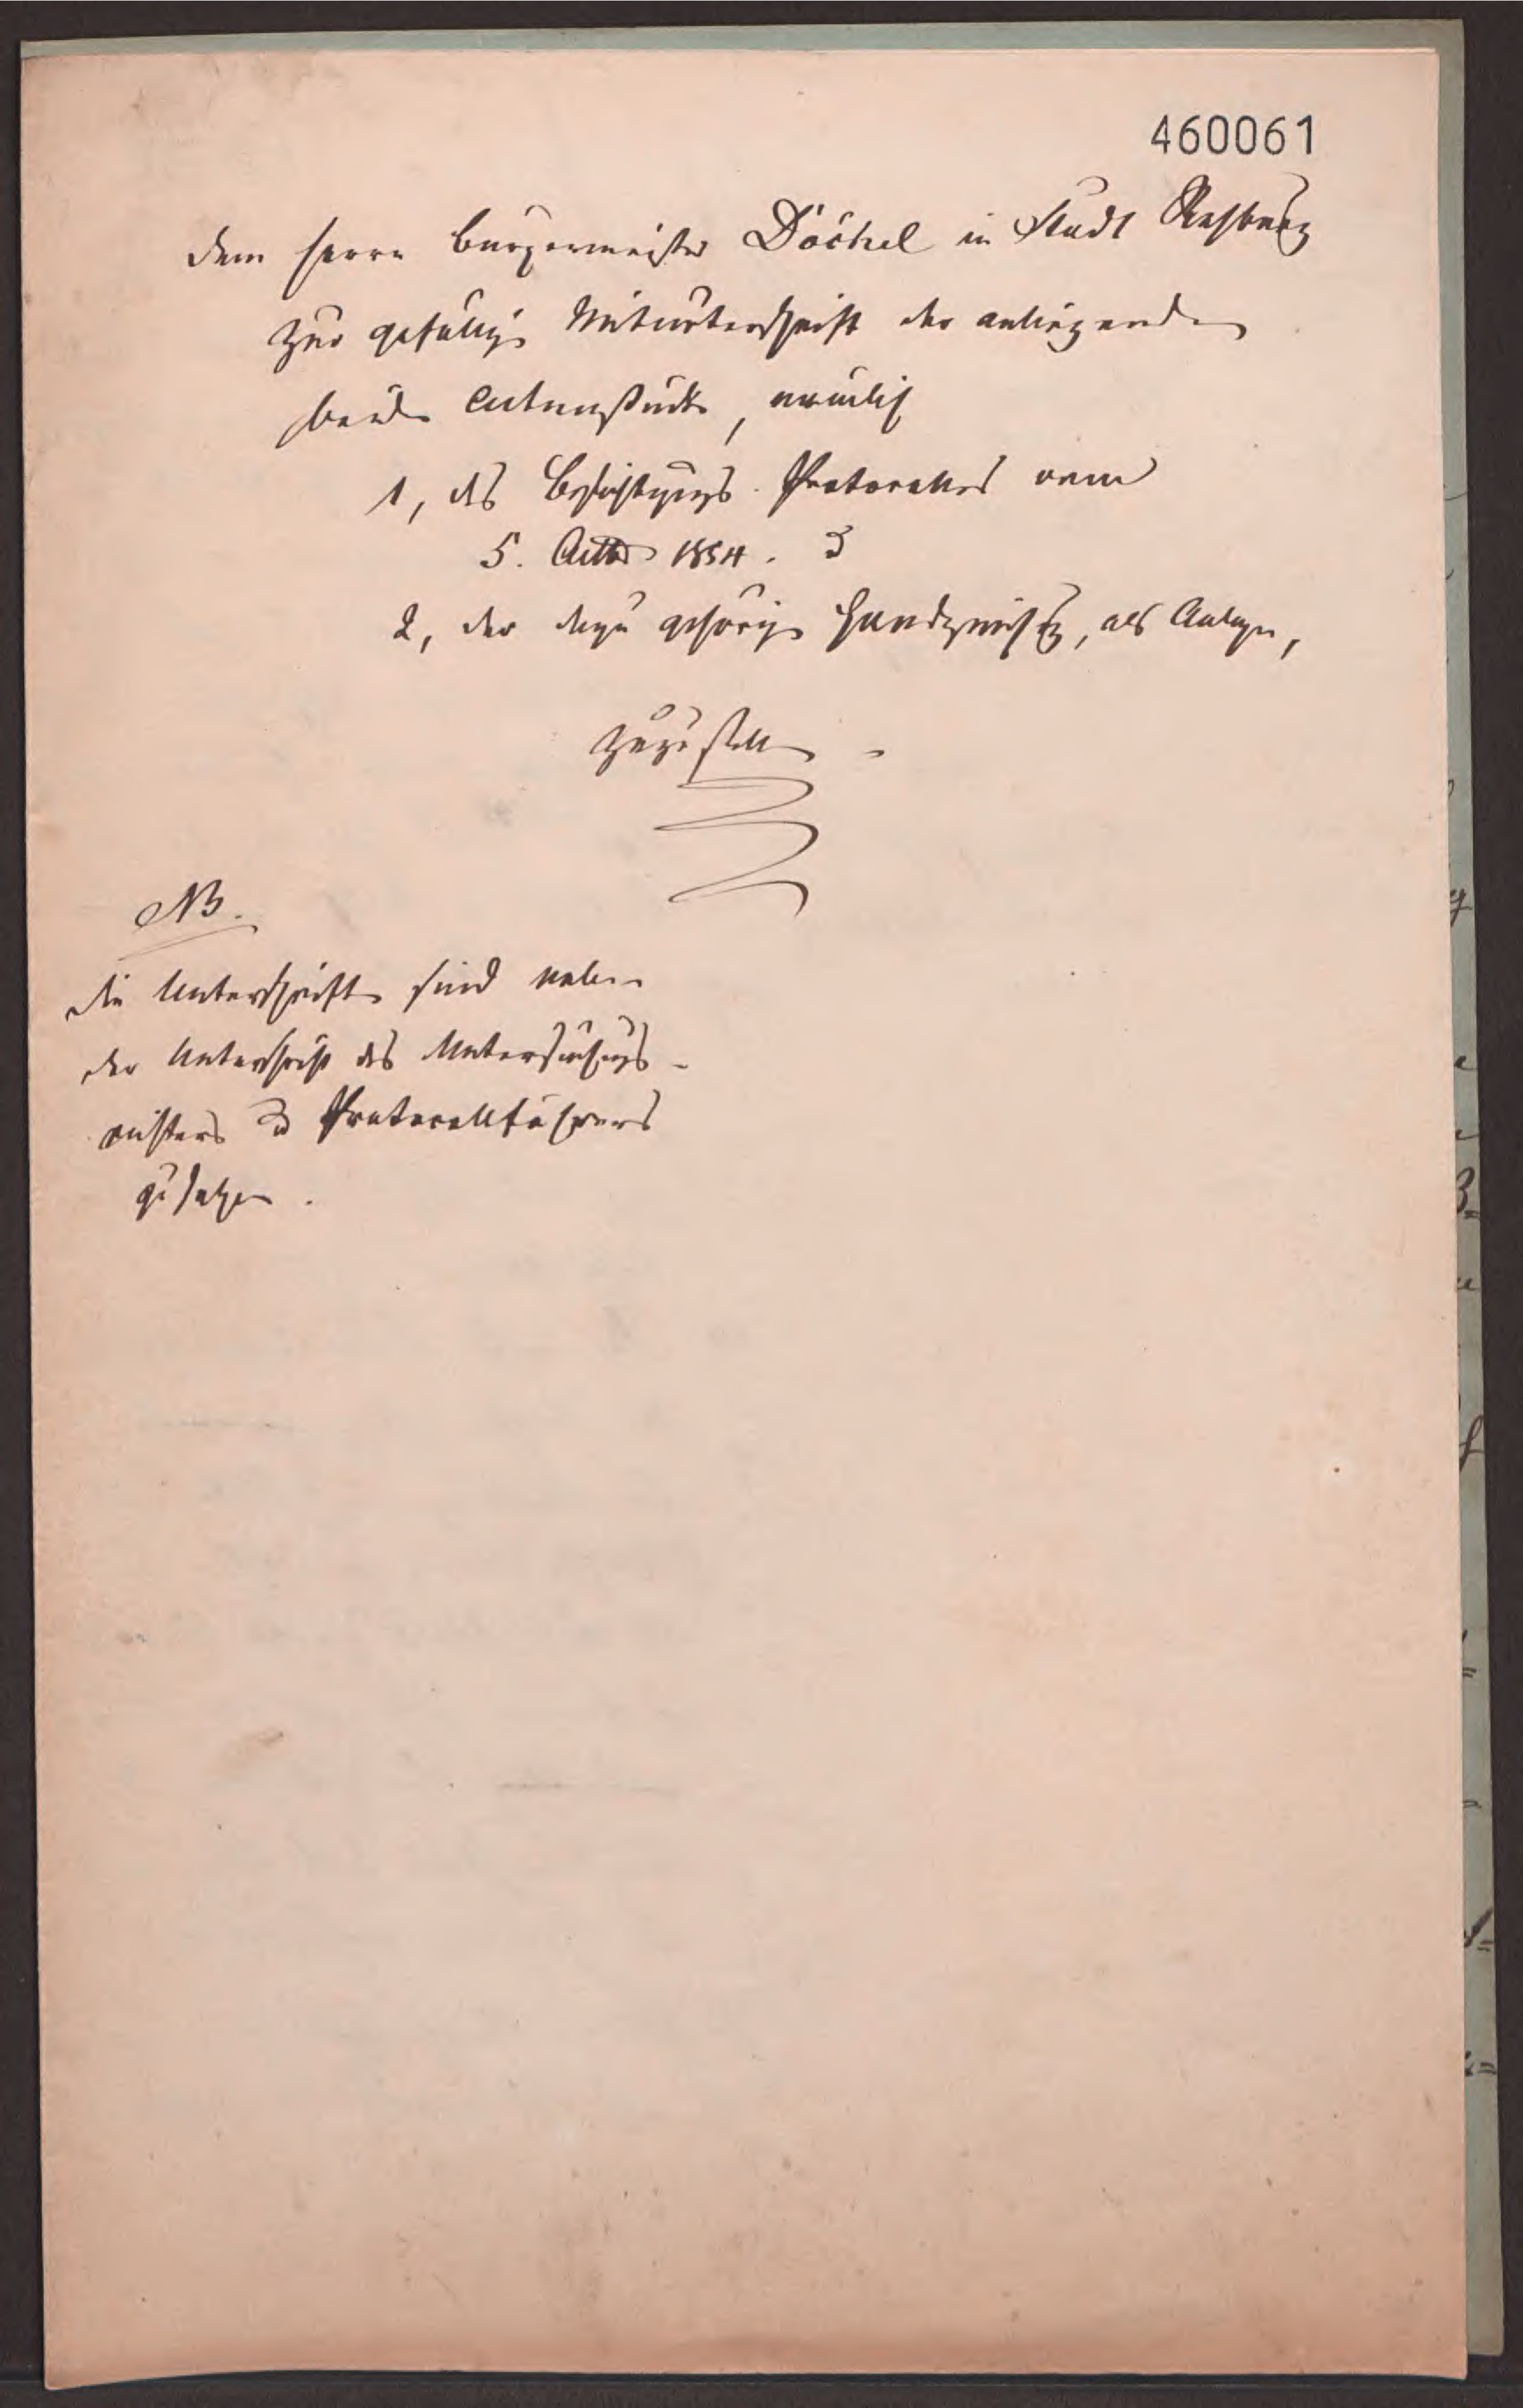 460061
Dem Herrn Bürgermeister Döchel in Stadt Rehburg
zur gefälligen Mitunterschrift der anliegenden
beiden Actenstücke, nämlich
1, des Besichtigungs-Protocolles vom
5. Octbr 1854. &
2, der dazu gehörigen Handzeichng, als Anlage,
zuzustellen.
NB.
die Unterschriften sind neben
der Unterschrift des Untersuchungs-
richters & Protocollführers
zu setzen.